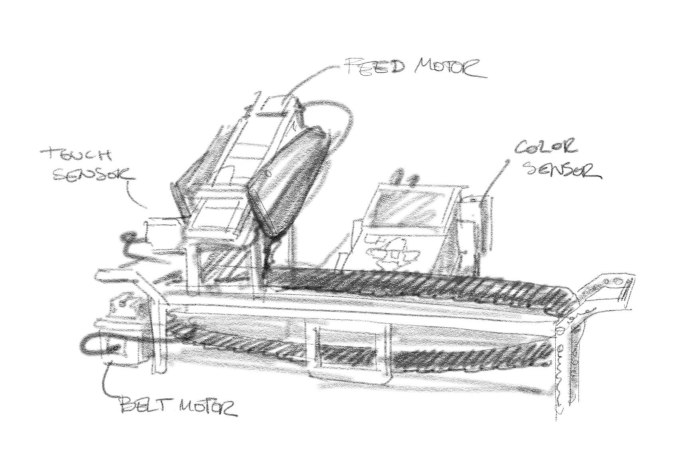 FEED MOTOR
TOUCH
SENSOR
COLOR
SENSOR
BELT MOTOR